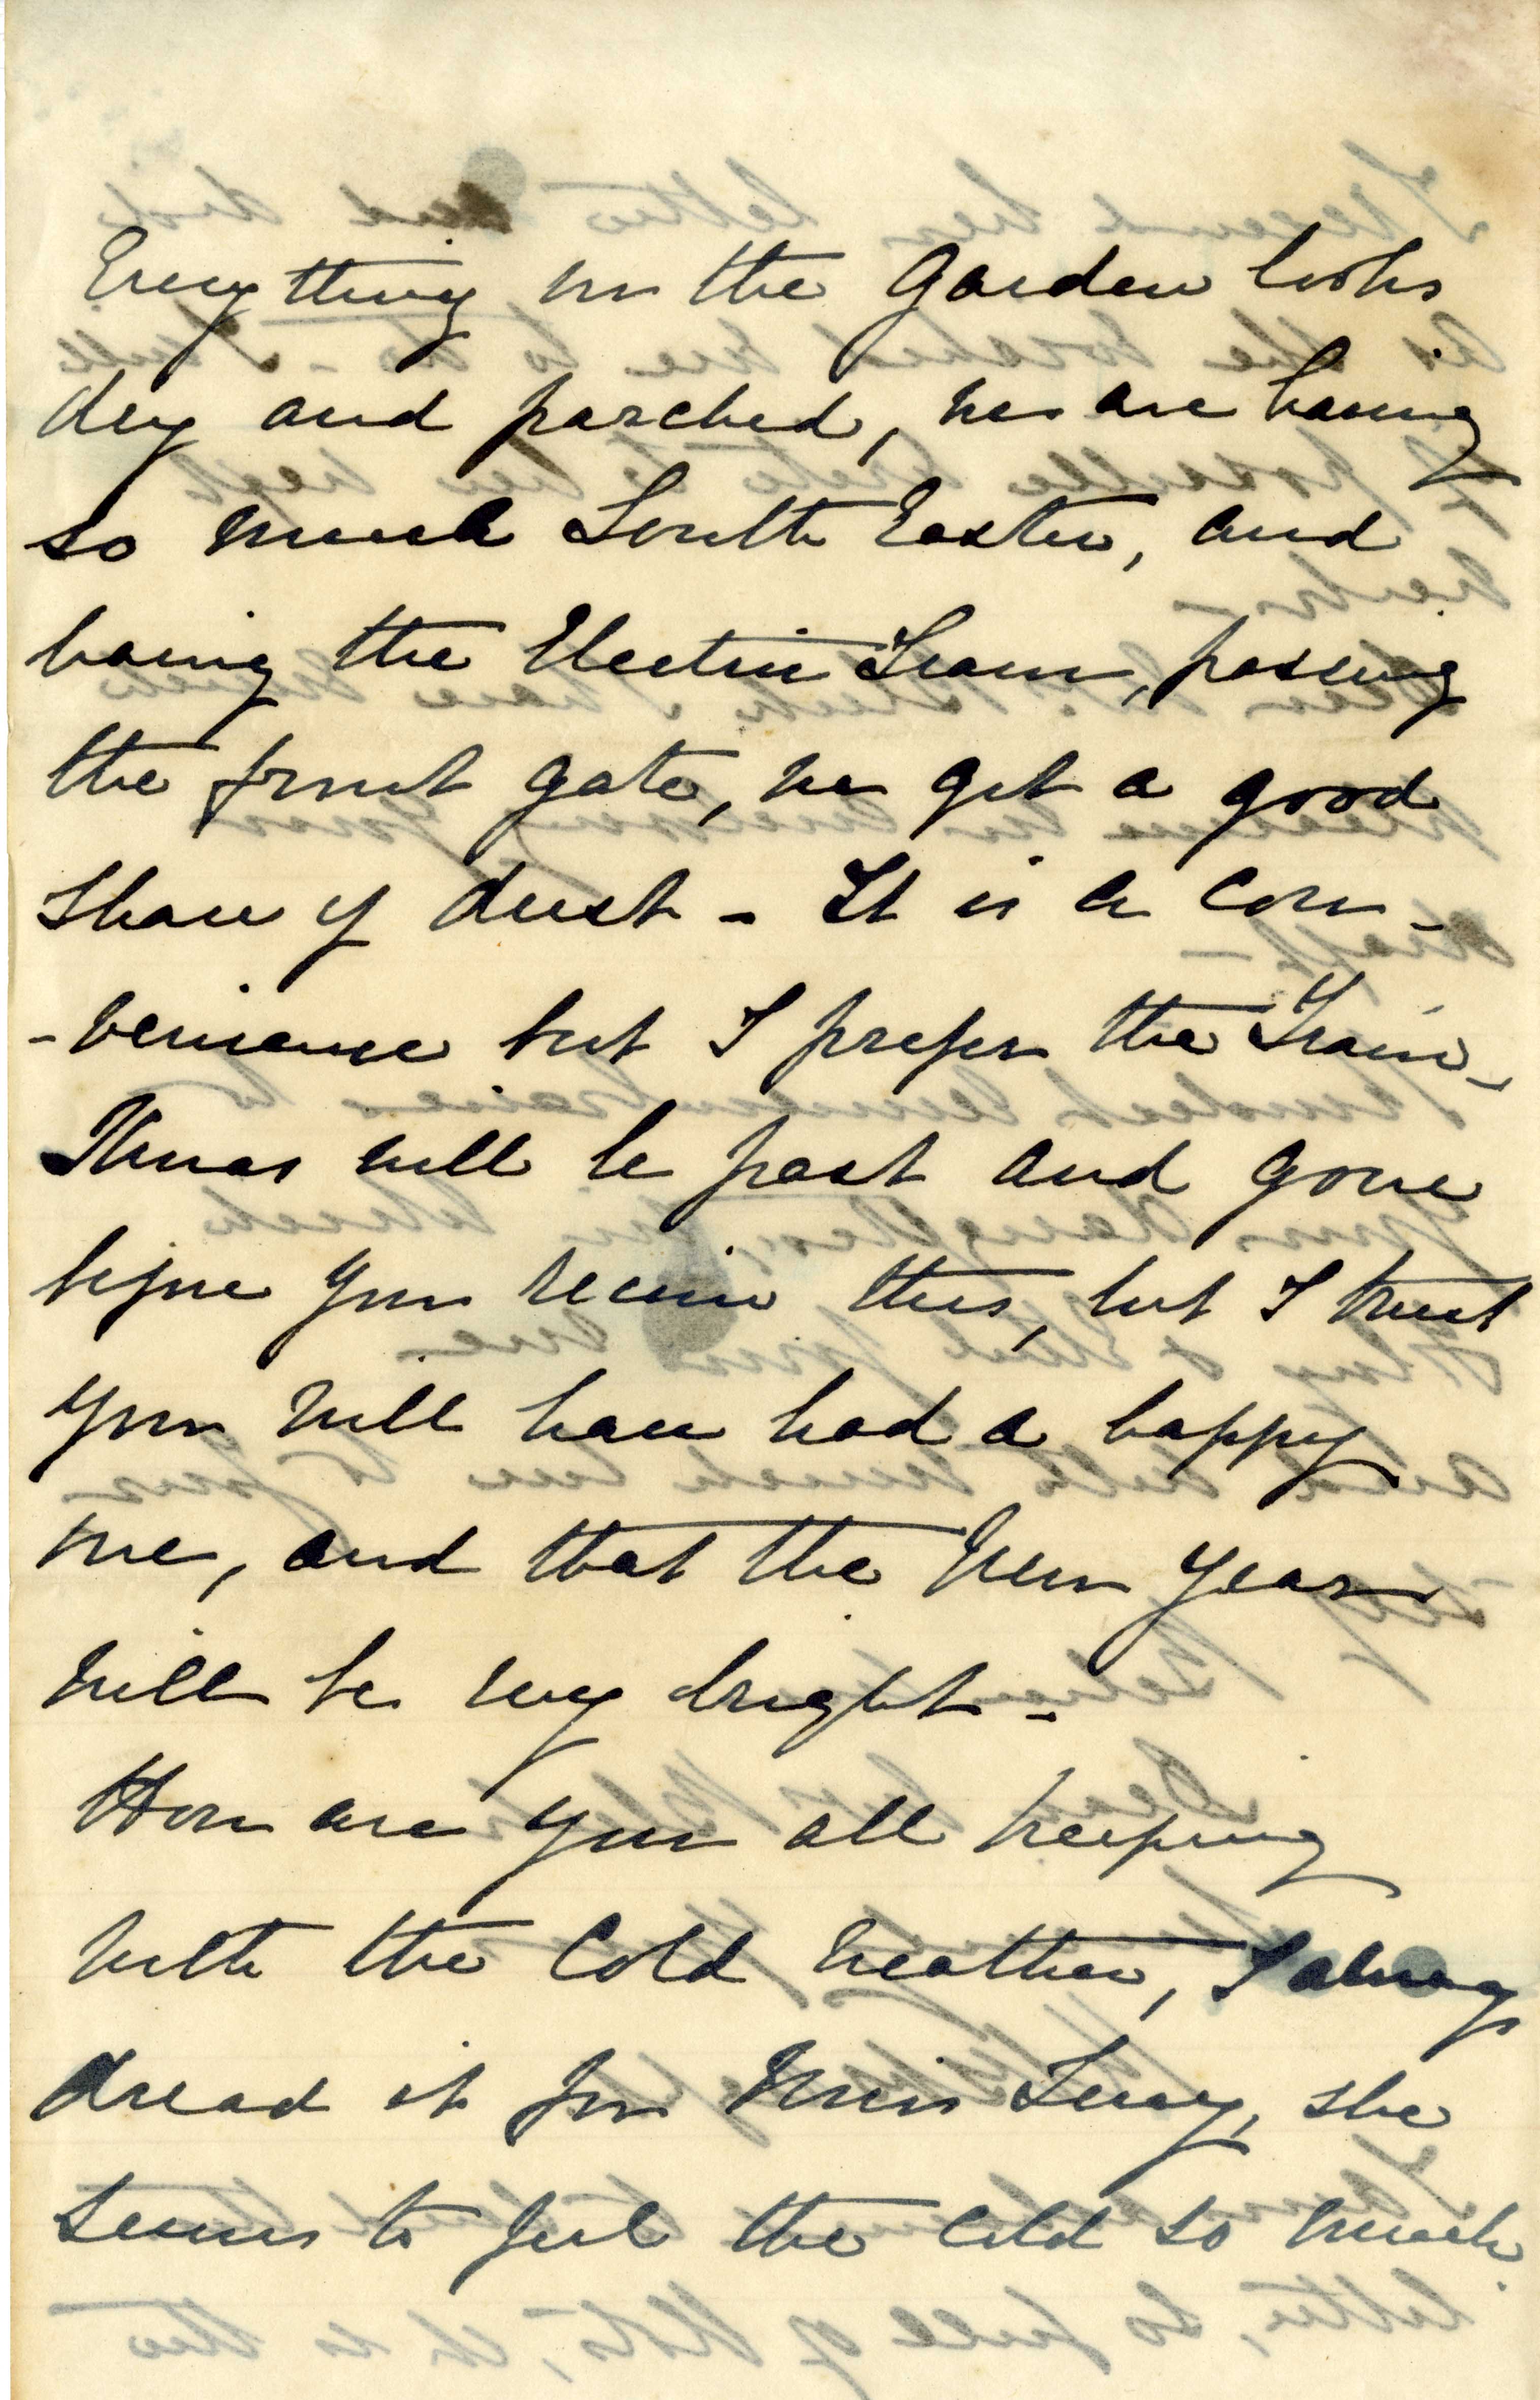 Everything in the Garden looks
dry and parched, we are having
so much South Easter, and
having the Electric Tram, passing
the front gate, we get a good
share of dust - It is a con-
-venience but I prefer the Train -
Xmas will be past and gone
before you receive this, but I trust
you will have had a happy
one, and that the New Year
will be very bright -
How are you all keeping
with the Cold weather, I always
dread it for Miss Lucy, she
seems to feel the cold so much